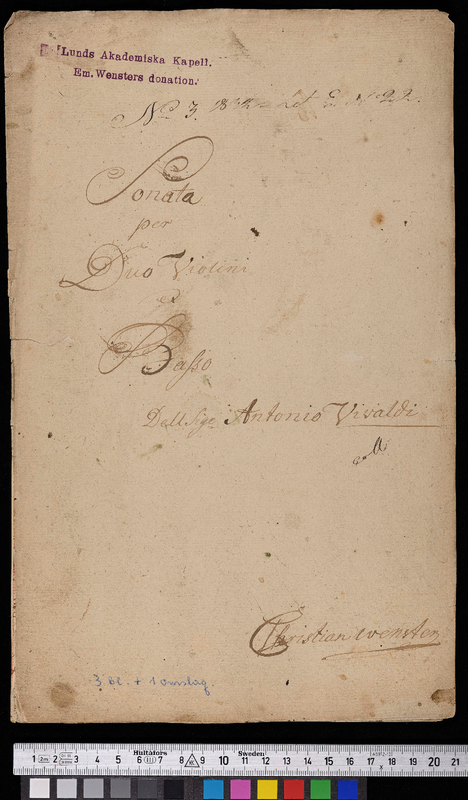 Lunds Akademiska Kapell.
Em. Wensters donation.
No 3.
Sonata
per
Duo Violini
et
Basso
Dell Sigr Antonio Vivaldi
Christian Wenster
3 bl. + 1 omslag
Hultafors Sweden
1 2m 2 3 4 5 6 7 8 9 10 11 12 13 14 15 16 17 18 19 20 21